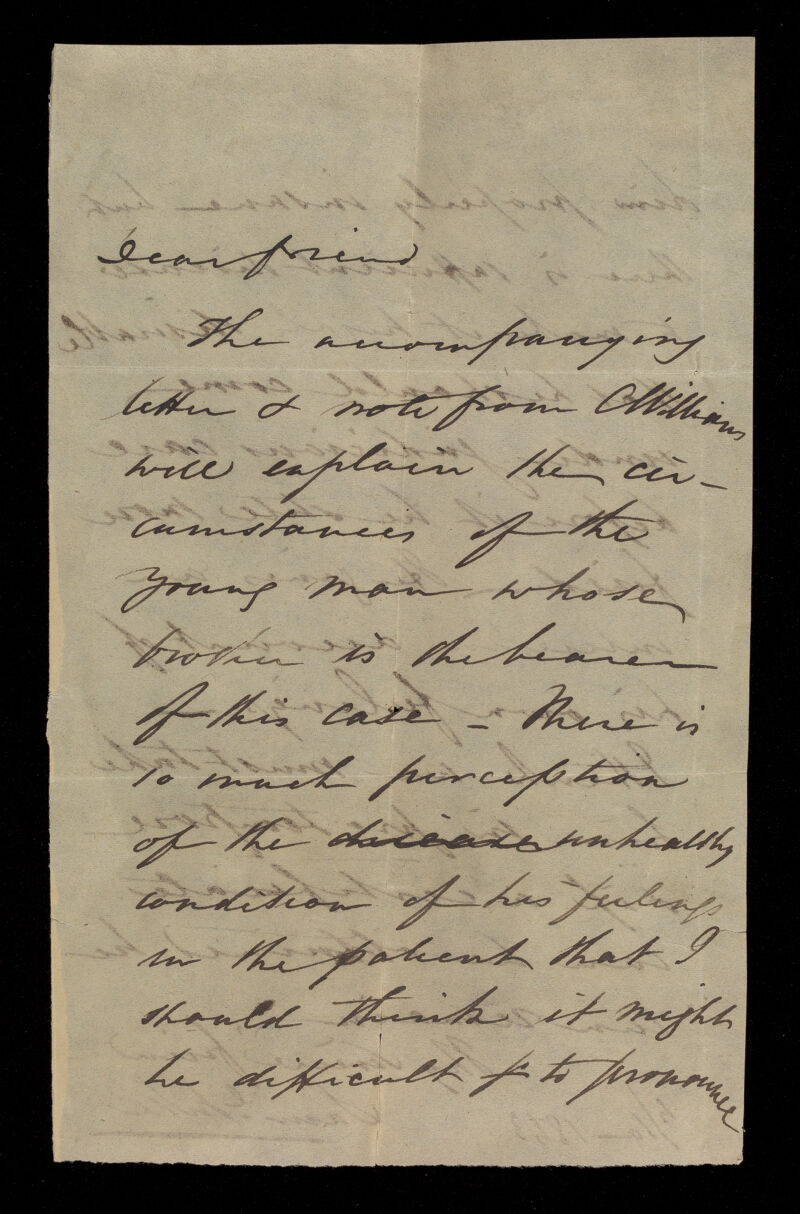 Dear friend
The accompanying
letter & note from C Williams
will explain the cir-
cumstances of the
young man whose
brother is the bearer
of this case - There is
so much perception
of the disease unhealthy
condition of his feelings
in the patient that I
should think it might
be difficult to pronounce